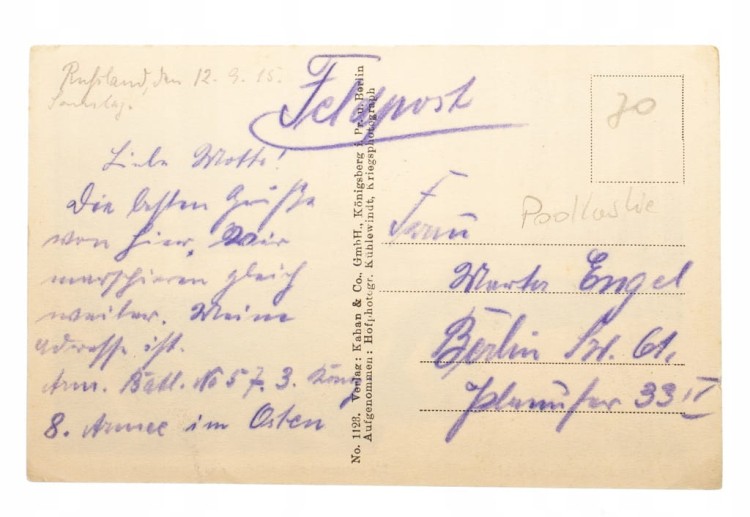 Rußland, den 12. 9. 15.
Sonntag.
Feldpost
70
Liebe Motte!
Die besten Grüße
von hier. Wir
marschieren gleich
weiter. Meine
Adresse ist.
Arm. Batl. No 57. 3. Komp
8. Armee im Osten
No. 1123. Verlag: Kahan & Co., GmbH., Königsberg i. Pr. u. Berlin
Aufgenommen: Hofphotogr. Kühlewindt, Kriegsphotograph
Podlaskie
Frau
Marta Engel
Berlin So. 61.
Planufer 33 II